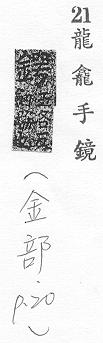 21 龍龕手鏡
(金部 p.20)